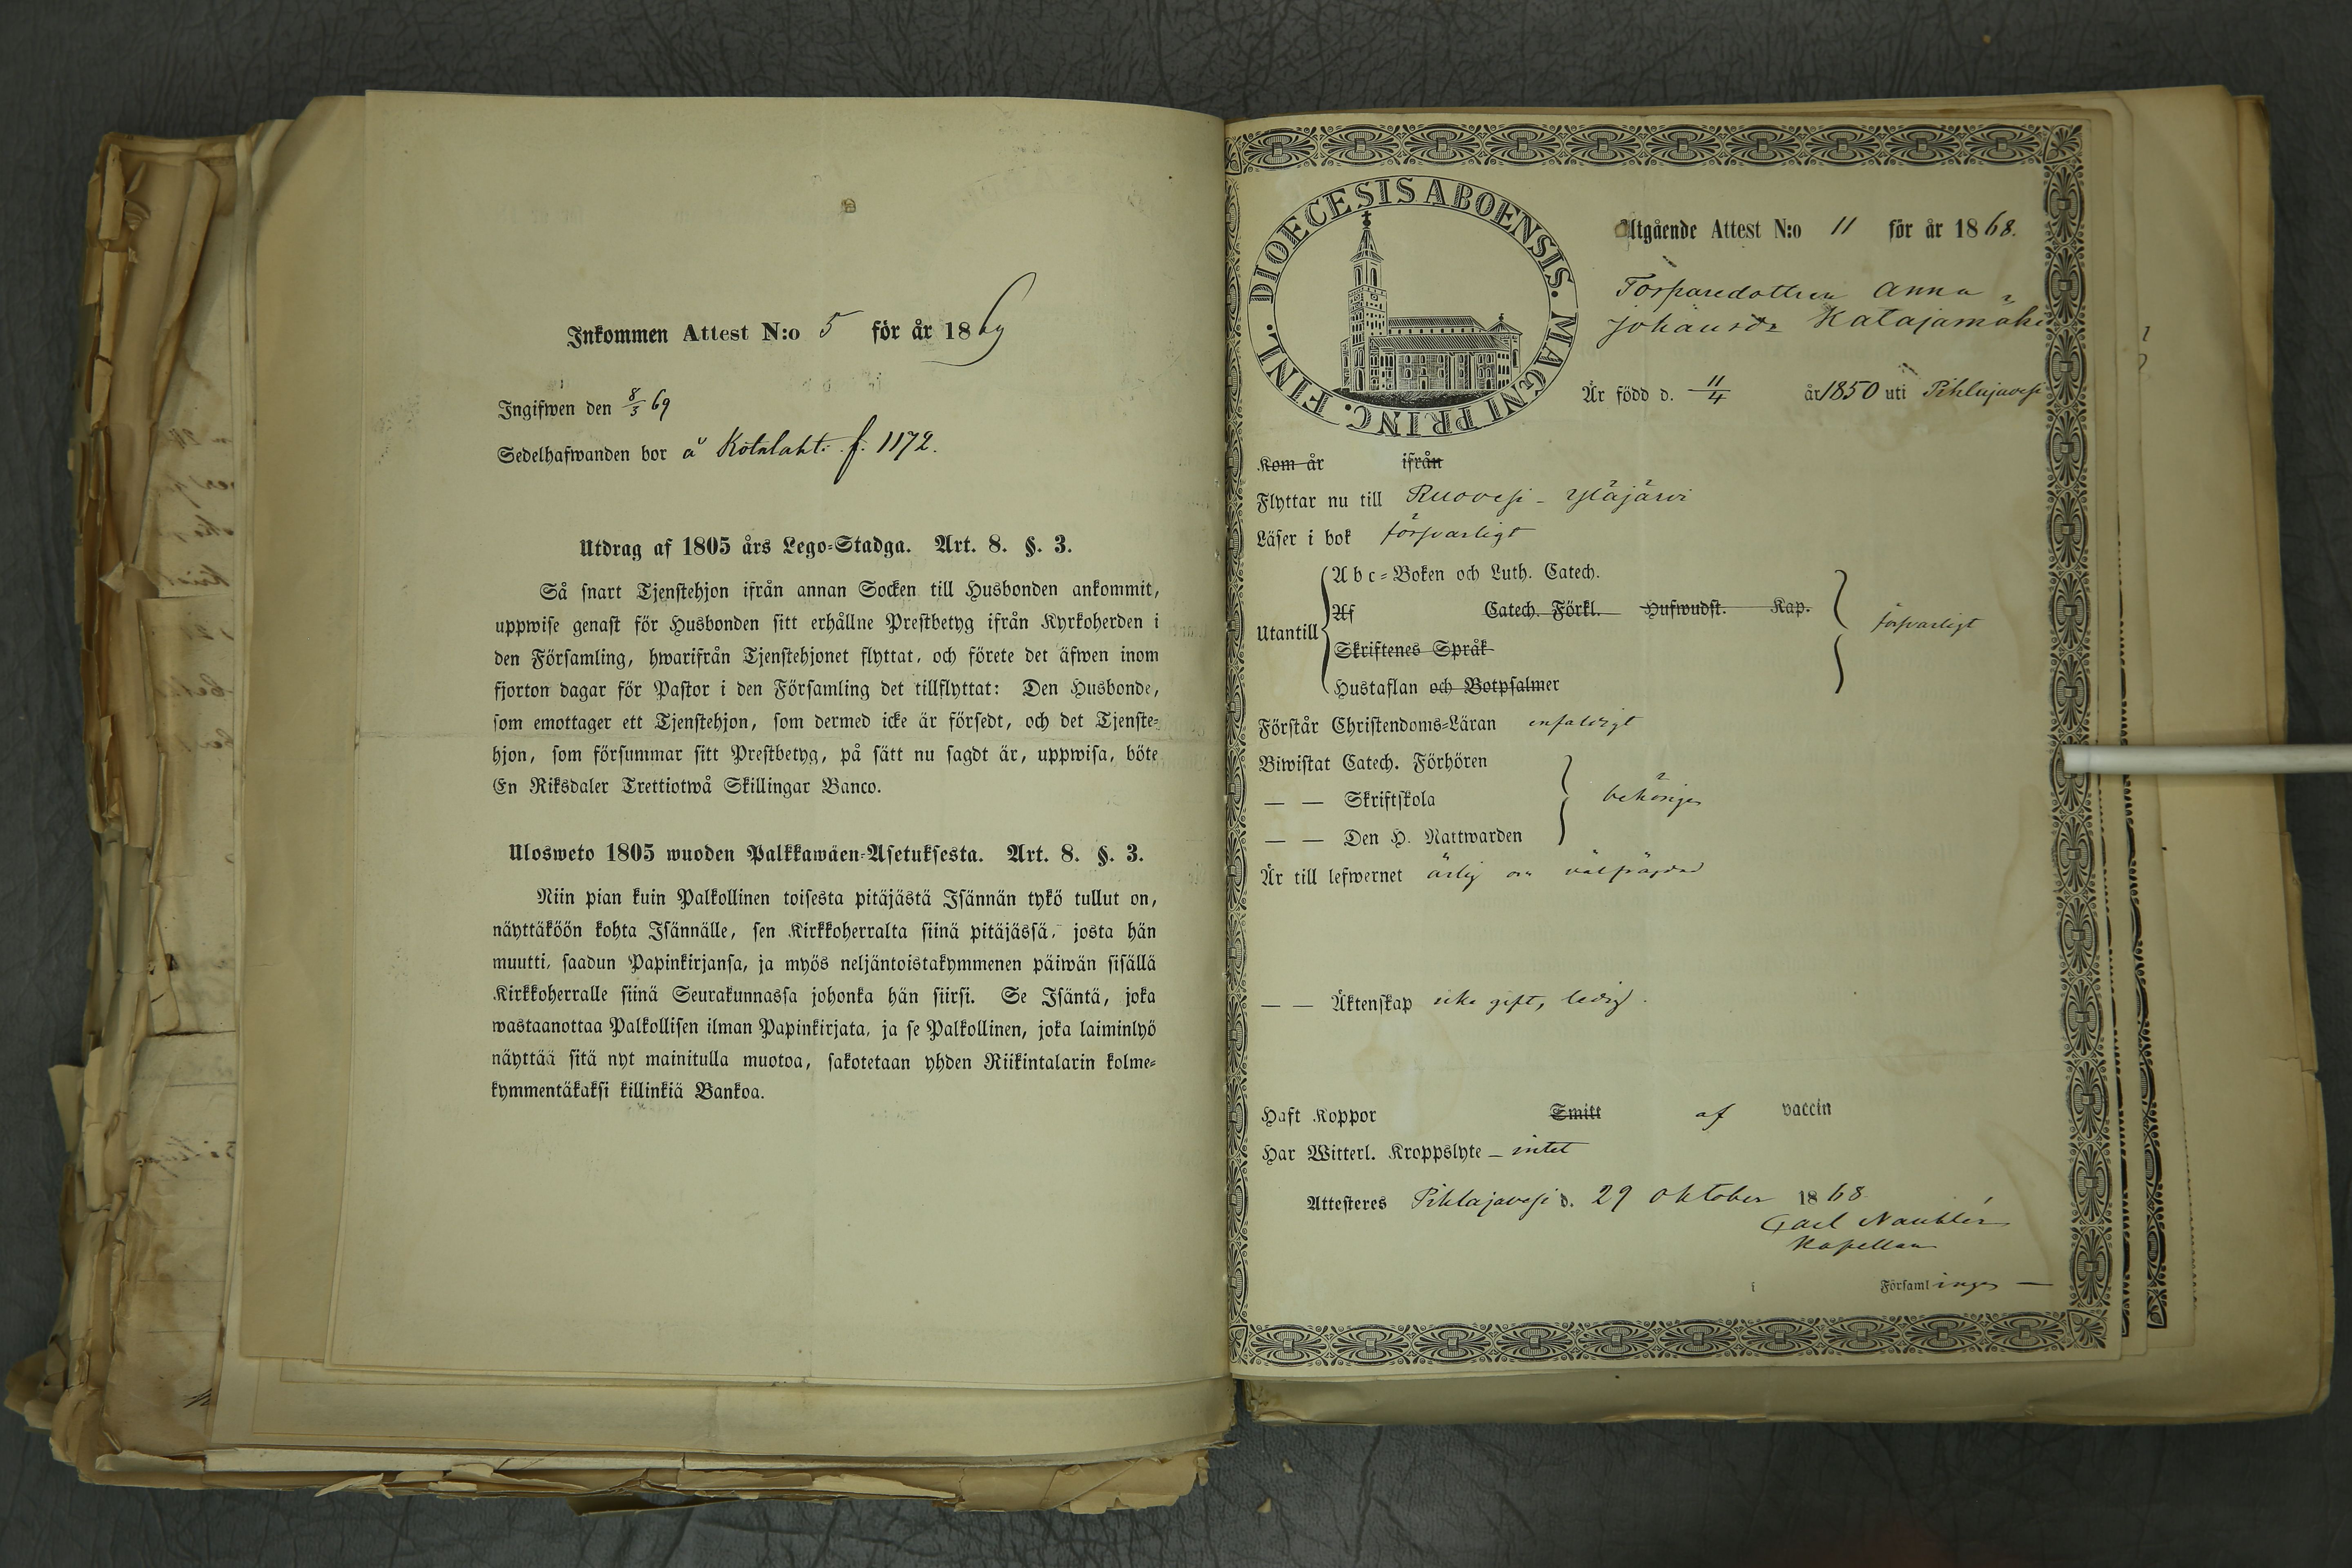 Inkommen Attest N:o 5 för år 1869
Ingifwen den 8/3 69
Sedelhafwanden bor å Kotalaht: f. 1172.
Utdrag af 1805 års Lego-Stadga. Art. 8. §. 3.
Så snart Tjenstehjon ifrån annan Socken till Husbonden ankommit,
uppwise genast för Husbonden sitt erhållne Prestbetyg ifrån Kyrkoherden i
den Församling, hwarifrån Tjenstehjonet flyttat, och förete det äfwen inom
fjorton dagar för Pastor i den Församling det tillflyttat: Den Husbonde,
som emottager ett Tjenstehjon, som dermed icke är försedt, och det Tjenste-
hjon, som försummar sitt Prestbetyg, på sätt nu sagdt är, uppwisa, böte
En Riksdaler Trettiotwå Skillingar Banco.
Ulosweto 1805 wuoden Palkkawäen-Asetuksesta. Art. 8. §. 3.
Niin pian kuin Palkollinen toisesta pitäjästä Isännän tykö tullut on,
näyttäköön kohta Isännälle, sen Kirkkoherralta siinä pitäjässä, josta hän
muutti, saadun Papinkirjansa, ja myös neljäntoistakymmenen päiwän sisällä
Kirkkoherralle siinä Seurakunnassa johonka hän siirsi. Se Isäntä, joka
wastaanottaa Palkollisen ilman Papinkirjata, ja se Palkollinen, joka laiminlyö
näyttää sitä nyt mainitulla muotoa, sakotetaan yhden Riikintalarin kolme-
kymmentäkaksi killinkiä Bankoa.
DIOECESIS ABOENSIS. MAGNI PRINC. FINL.
Utgående Attest N:o 11 för år 1868.
Torparedottren Anna
Johansdr Katajamäki
Är född d. 11/4 år 1850 uti Pihlajavesi
Kom år ifrån
Flyttar nu till Ruovesi - Yläjärvi
Läser i bok försvarligt
Utantill
Abc-Boken och Luth. Catech.
Af Catech. Förkl. Hufwudst. Kap.
försvarligt
Skriftenes Språk
Hustaflan och Botpsalmer
Förstår Christendoms-Läran enfaldigt
Biwistat Catech. Förhören
— — Skriftskola behörigen
— — Den H. Nattwarden
Är till lefwernet ärlig och välfrägdad
— — Äktenskap icke gift, ledig.
Haft Koppor Smitt af vaccin
Har Witterl. Kroppslyte - intet
Attesteres Pihlajavesi d. 29 oktober 1868
Carl
Kapellan
i Församlingen —